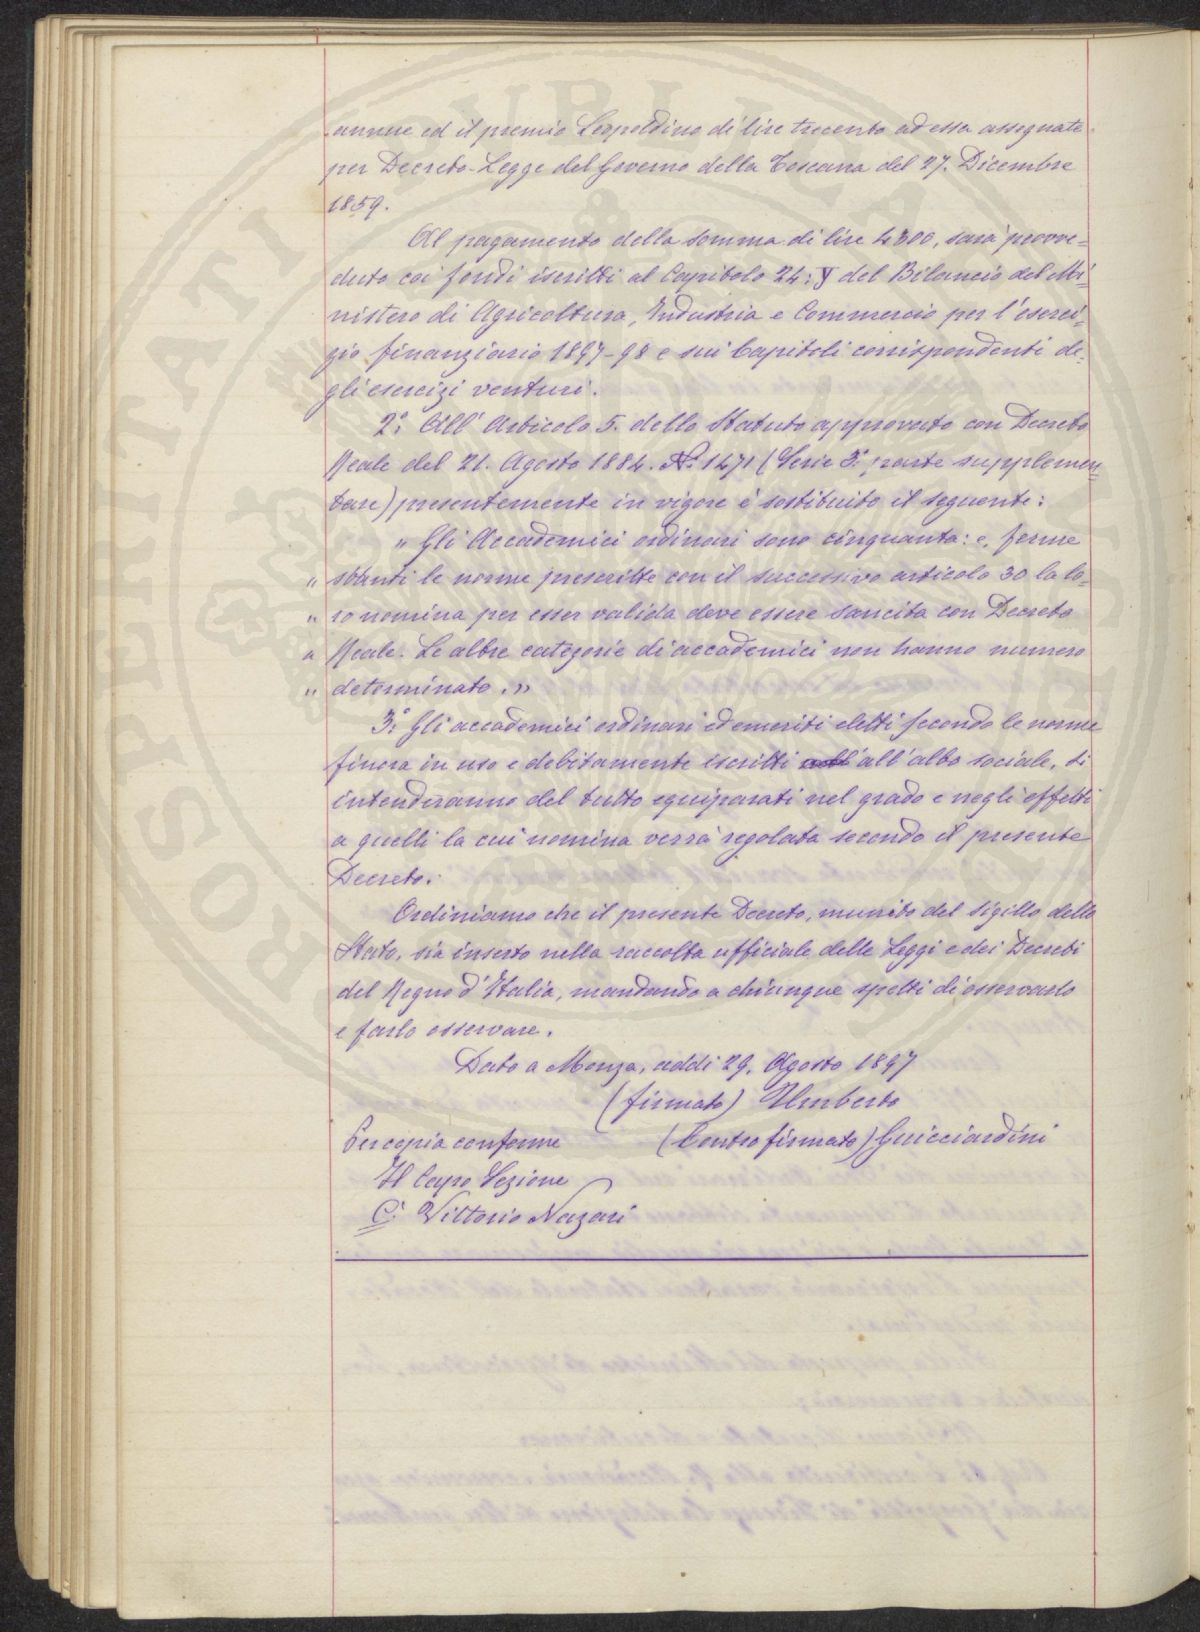 annue ed il premio Leopoldino di lire trecento ad essa assegnate
per Decreto-Legge del Governo della Toscana del 27. Dicembre
1859.
Al pagamento della somma di lire 4300, sarà provve=
duto coi fondi iscritti al Capitolo 24: V del Bilancio del Mi=
nistero di Agricoltura, Industria e Commercio per l'eserci=
zio finanziario 1897-98 e sui Capitoli corrispondenti de=
gli esercizi venturi.
2.° All' Articolo 5. dello Statuto approvato con Decreto
Reale del 21. Agosto 1884. N.° 1471 (Serie 3.ª parte supplemen=
tare) presentemente in vigore è sostituito il seguente:
" Gli Accademici ordinari sono cinquanta: e, ferme
" stanti le norme prescritte con il successivo articolo 30 la lo=
" ro nomina per esser valida deve essere sancita con Decreto
" Reale. Le altre categorie di accademici non hanno numero
" determinato. "
3.° Gli accademici ordinari ed emeriti eletti secondo le norme
finora in uso e debitamente iscritti all'albo sociale, si
intenderanno del tutto equiparati nel grado e negli effetti
a quelli la cui nomina verrà regolata secondo il presente
Decreto.
Ordiniamo che il presente Decreto, munito del sigillo dello
Stato, sia inserto nella raccolta ufficiale delle Leggi e dei Decreti
del Regno d'Italia, mandando a chiunque spetti di osservarlo
e farlo osservare.
Dato a Monza, addì 29. Agosto 1897
(firmato) Umberto
Per copia conforme (Contro firmato) Guicciardini
Il Capo Sezione
C. Vittorio Nazari